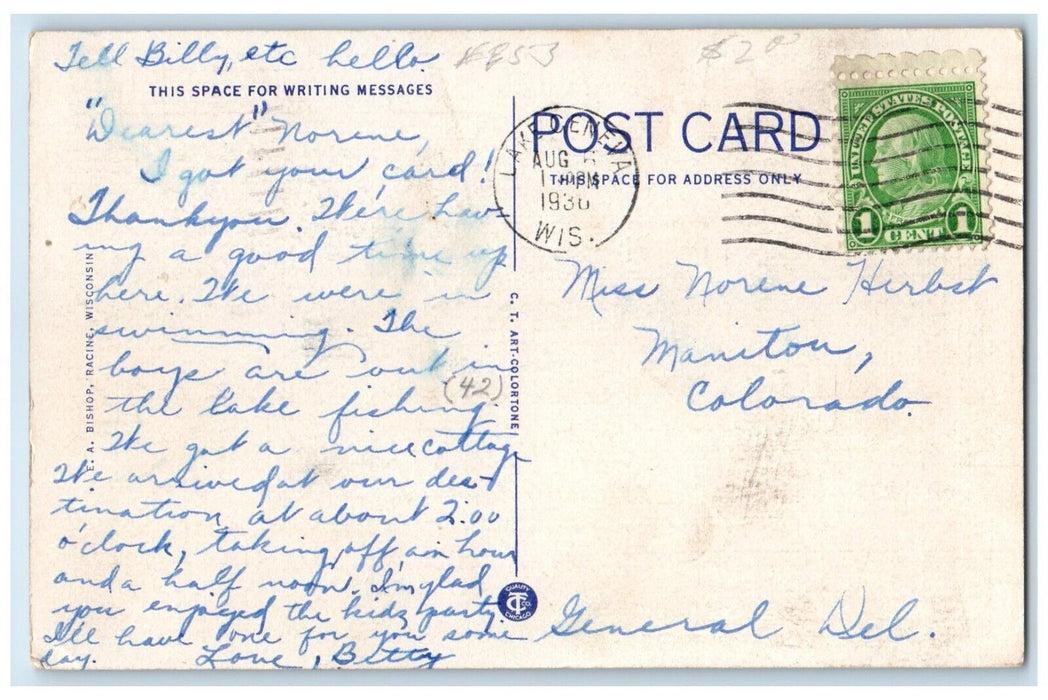 Tell Billy, etc hello.
THIS SPACE FOR WRITING MESSAGES
"Dearest" Norene,
I got your card!
Thankyou. We're hav-
ing a good time up
here. We were in
swimming. The
boys are out in
the lake fishing.
We got a nice cottage
We arrived at our des-
tination at about 2:00
o'clock, taking off an hour
and a half noon. I'm glad
you enjoyed the kids party
I'll have one for you some
day. Love, Betty
E. A. BISHOP, RACINE, WISCONSIN
C. T. ART-COLORTONE
(42)
QUALITY
CT CO.
CHICAGO
$2
POST CARD
THIS SPACE FOR ADDRESS ONLY
LAKE GENEVA
AUG
1936
WIS.
UNITED STATES POSTAGE
FRANKLIN
1 CENT 1
Miss Norene Herbst
Manitou,
Colorado.
General Del.